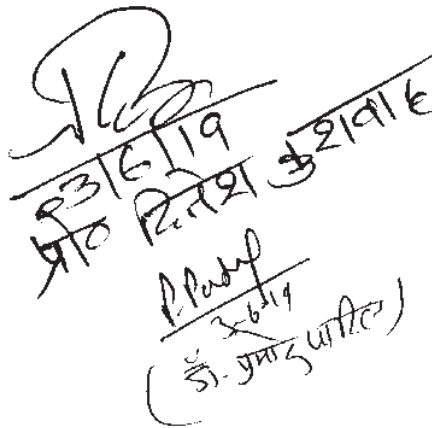 03/6/19
प्रो० दिनेश कुशवाह
P. Patil
3-6-19
(डॉ. प्रमोद पाटिल)